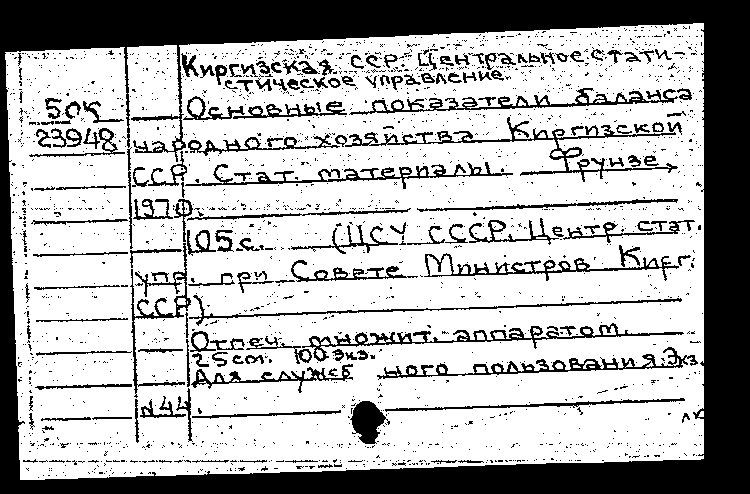 Киргизская ССР. Центральное стати-
стическое управление.
50к Основные показатели баланса
23948 народного хозяйства Киргизской
ССР. Стат. материалы. Фрунзе,
1970.
105с. (ЦСУ СССР. Центр. стат.
упр. при Совете Министров Кирг.
ССР).
Отпеч. множит. аппаратом.
25 cm. 100 экз.
Для служеб ного пользования. Экз.
N 44.